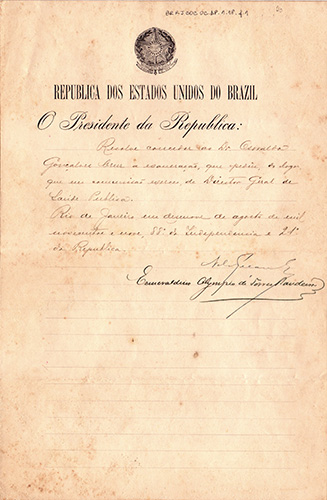 REPUBLICA DOS ESTADOS UNIDOS DO BRAZIL
O Presidente da Republica:
Resolve conceder ao Dr. Oswaldo
Gonçalves Cruz a exoneração, que pediu, do logo
que em commissão exerce, de Director Geral de
Saude Publica.
Rio de Janeiro em dezenove de agosto de mil
novecentos e nove, 88º da Independencia e 21º
da Republica.
Nilo Peçanha
Esmeraldino Olympio de Torres Bandeira